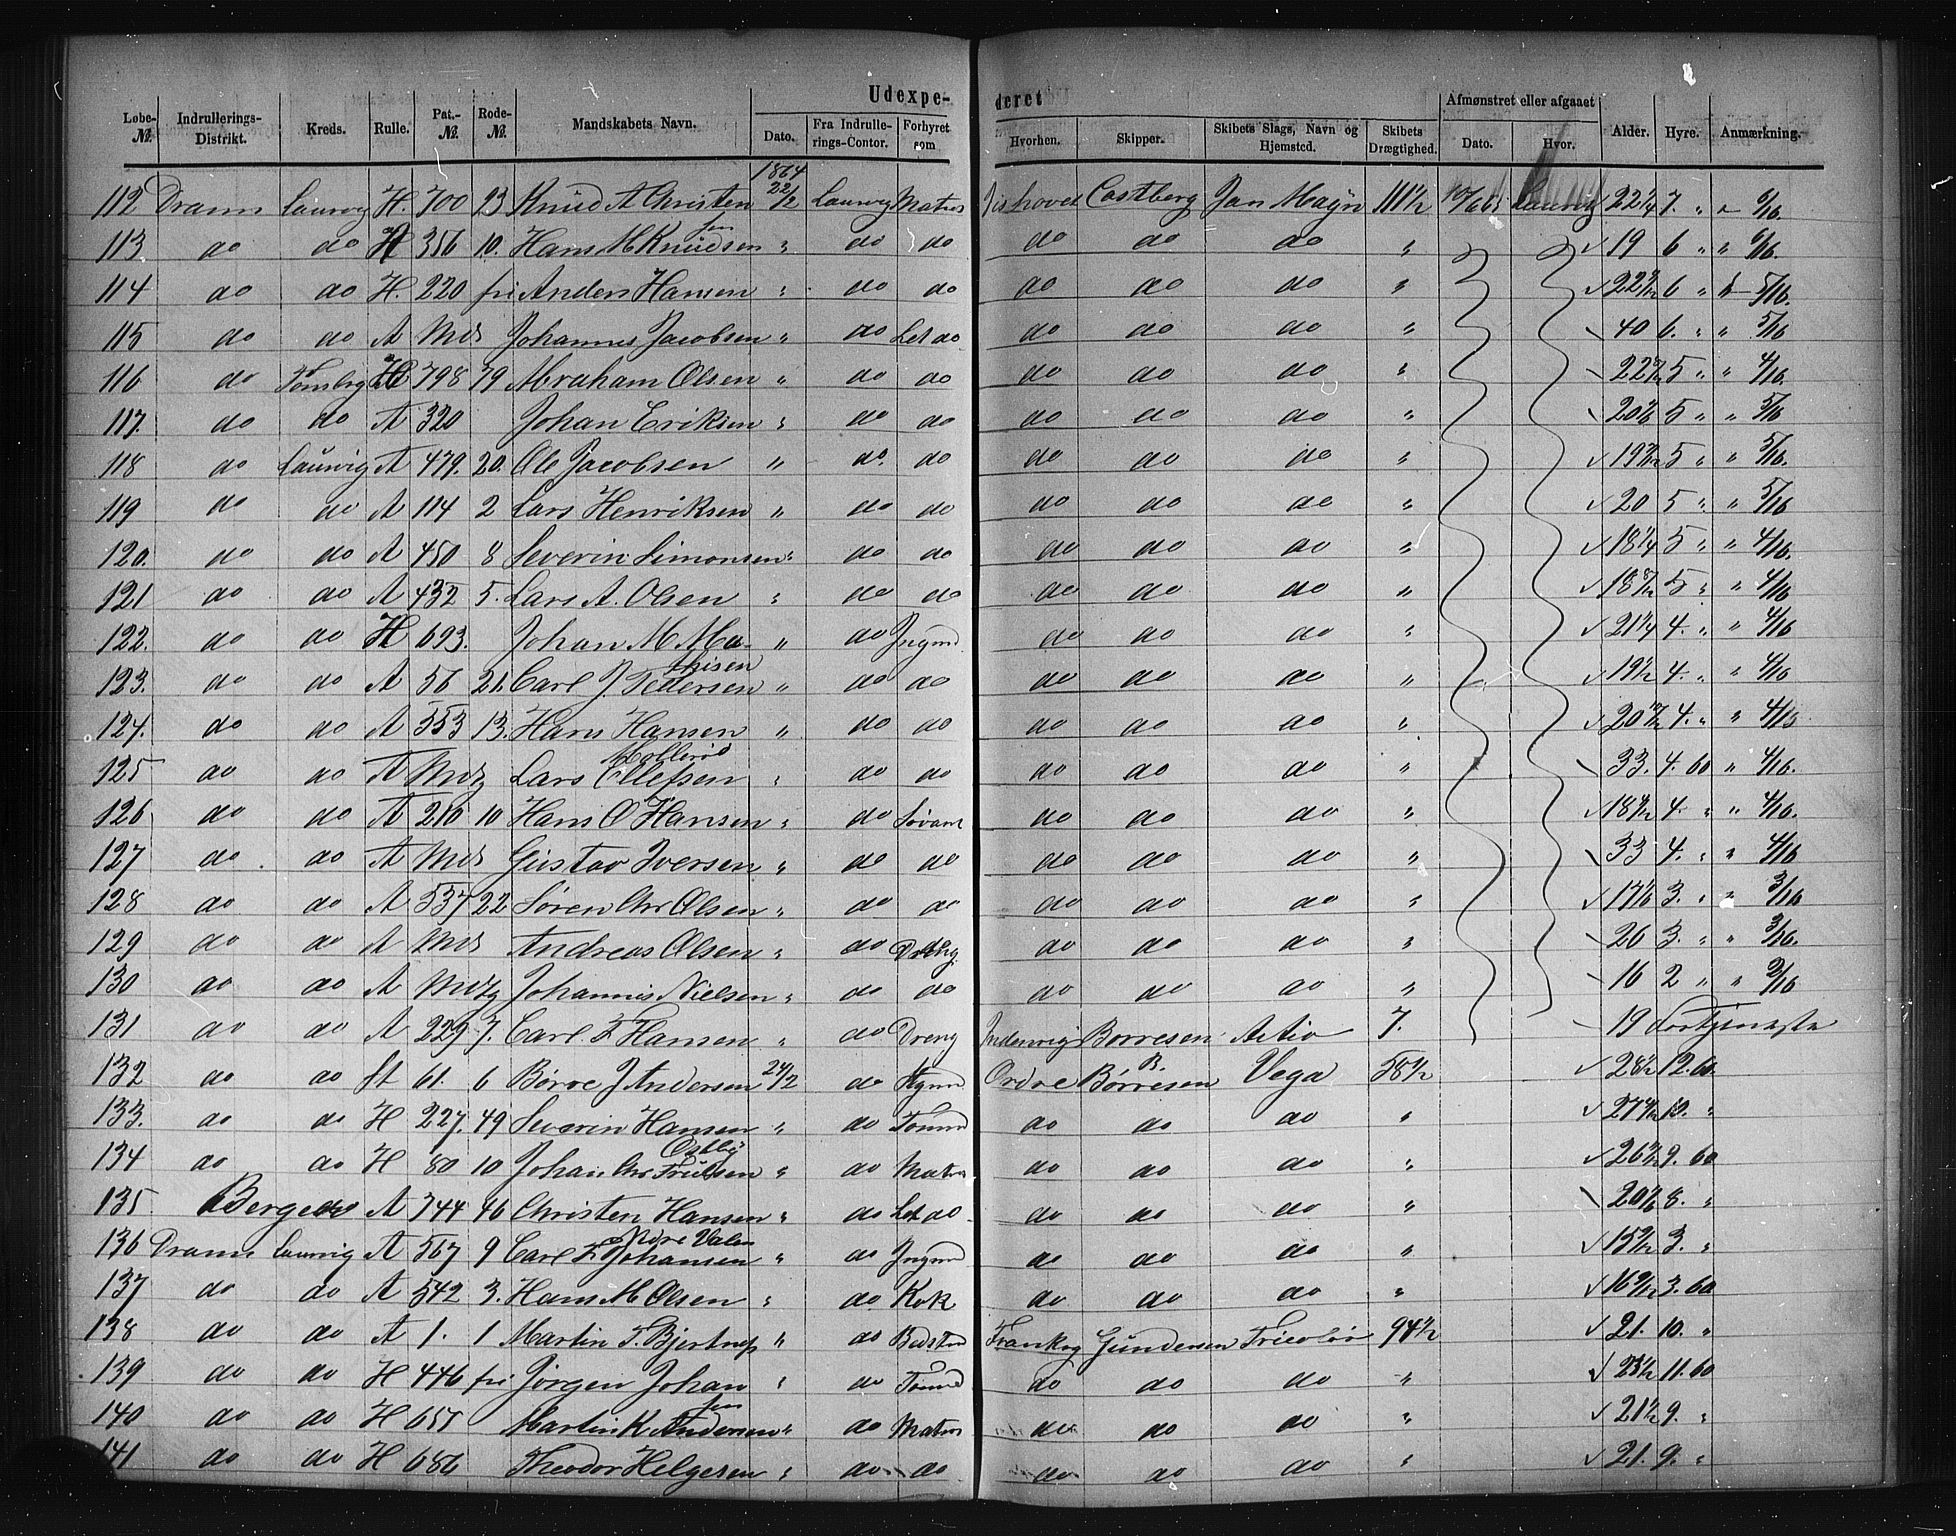 Udexpe- deret
Løbe-№ Indrullerings-Distrikt. Kreds. Rulle. Pat.-№ Rode-№ Mandskabets Navn. Dato. Fra Indrulle-rings-Contor. Forhyret som Hvorhen. Skipper. Skibets Slags, Navn og Hjemsted. Skibets Drægtighed. Afmønstret eller afgaaet Dato. Hvor. Alder. Hyre. Anmærkning.
1864
112 Dram Laurvig H. 700 23 Knud A Christensen 22/2 Laurvig Matros Ishovet Castberg Jan Mayn 111½ Laurvig 22¼ 7. " 6/16.
113 do do H 356 10. Hans M Knudsen " do do do do do " 19 6 " " 6/16.
114 do do H. 220 fri Anders Hansen " do do do do do " 6 " 5/16.
115 do do A Mds Johannes Jacobsen " do Let do do do do " 40 6. " " 5/16
116 do Tønsbrg H 798 79 Abraham Olsen " do do do do do " 5 " " 4/16.
117. do do A 320 Johan Eriksen " do do do do do " 5 " " 5/16
118 do Laurvig A 479. 20. Ole Jacobsen " do. do do do do " 5 " " 5/16.
119 do do A 114 2 Lars Henriksen " do do do do do " 20 5 " " 5/16
120. do do A 450 8 Severin Simonsen " do do do do do " 18¼ 5 " " 4/16.
121 do do A 432 5. Lars A. Olsen " do do do do do " 5 " " 4/16
122. do do H 693. Johan M Mathisen " do Jngmd do do do " 21¼ 4. " " 4/16
123. do do A 56 21. Carl J Pedersen " do do do do do " 19½ 4. " " 4/16
124. do do A 553 13. Hans Hansen " do do do do do " 4. " " 4/16
125 do do A Mdz Lars Ellefsen Mollerød " do do do do do " 33. 4. 60 " 4/16.
126 do do A 210 10 Hans O Hansen " do Jövant do do do " 4. " " 4/16.
127 do do A Mds Gustav Iversen " do do do do do " 33 4. " " 4/16
128 do do A 537 22 Søren Chr Olsen " do do do do do " 3. " " 3/16
129 do do A Mds Andreas Olsen " do do do do " 26 3. " " 3/16.
130 do do A Mdz Johannes Nielsen " do do do do do " 16 2 " " 2/16
131 do do A 229 7. Carl F Hansen " do Dreng Indenrigs Borresen Activ 7. 19 Fortjeneste
132 do do St 61. 6 Børre J Andersen 24/2 do Ordre B. Børresen Vega 58½ 28½ 12. 60.
133. do do H 227. 49 Severin Hansen " do Tømmd do do do " 10. "
134 do do H 80 10 Johan Chr Truelsen Ostby " do Matrs do do do " 9. 60
135 Bergens A 344 46 Christen Hansen " do Let do do do do " 8. "
136 Dram Laurvig A 567 9 Carl F Johansen Nore Valen " do Jngmd do do do " 3. "
137 do do A 542 3. Hans M Olsen " do Kok do do do " 3. 60
138 do do A 1. 1 Martin T. Bjertrup " do Bdstm Frankrg Gundersen Tricolør 94½ 21. 10. "
139 do do H 446 fri Jørgen Johansen " do Tømmd do do do " 11. 60
140 do do H 657 Martin K Andersen " do Matros do do do " 21½ 9. "
141 do do H 686 Theodor Helgesen " do do do do do " 21. 9. "